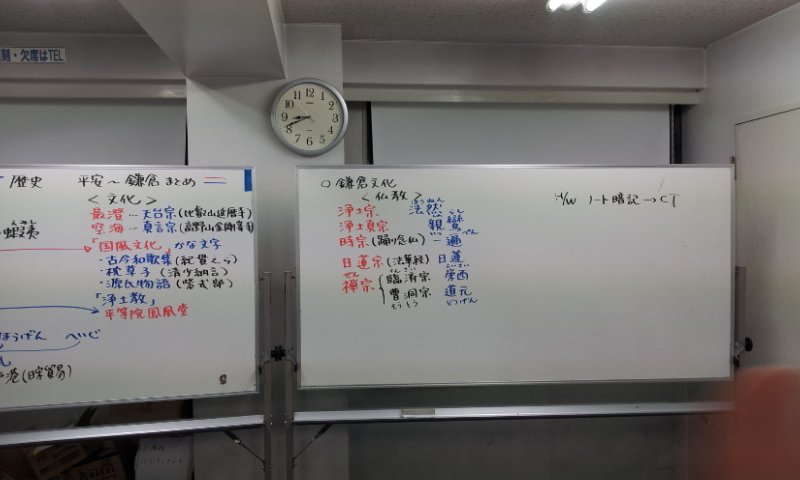 刻・欠席はTEL
12
1
2
3
4
5
6
7
8
9
10
11
歴史 平安～鎌倉まとめ
<文化>
最澄…天台宗(比叡山延暦寺)
空海…真言宗(高野山金剛峯寺)
蝦夷
「国風文化」かな文字
・古今和歌集(紀貫之ら)
・枕草子(清少納言)
・源氏物語(紫式部)
「浄土教」
平等院鳳凰堂
ほうげん へいじ
乱
港(日宋貿易)
○鎌倉文化
<仏教>
浄土宗 法然
しん
浄土真宗 親鸞
らん ぺん
時宗(踊り念仏) 一遍
日蓮宗(法華経) 日蓮
ぜん
禅宗 臨済宗 栄西
曹洞宗 道元
そうとう どうげん
H/W ノート暗記→CT